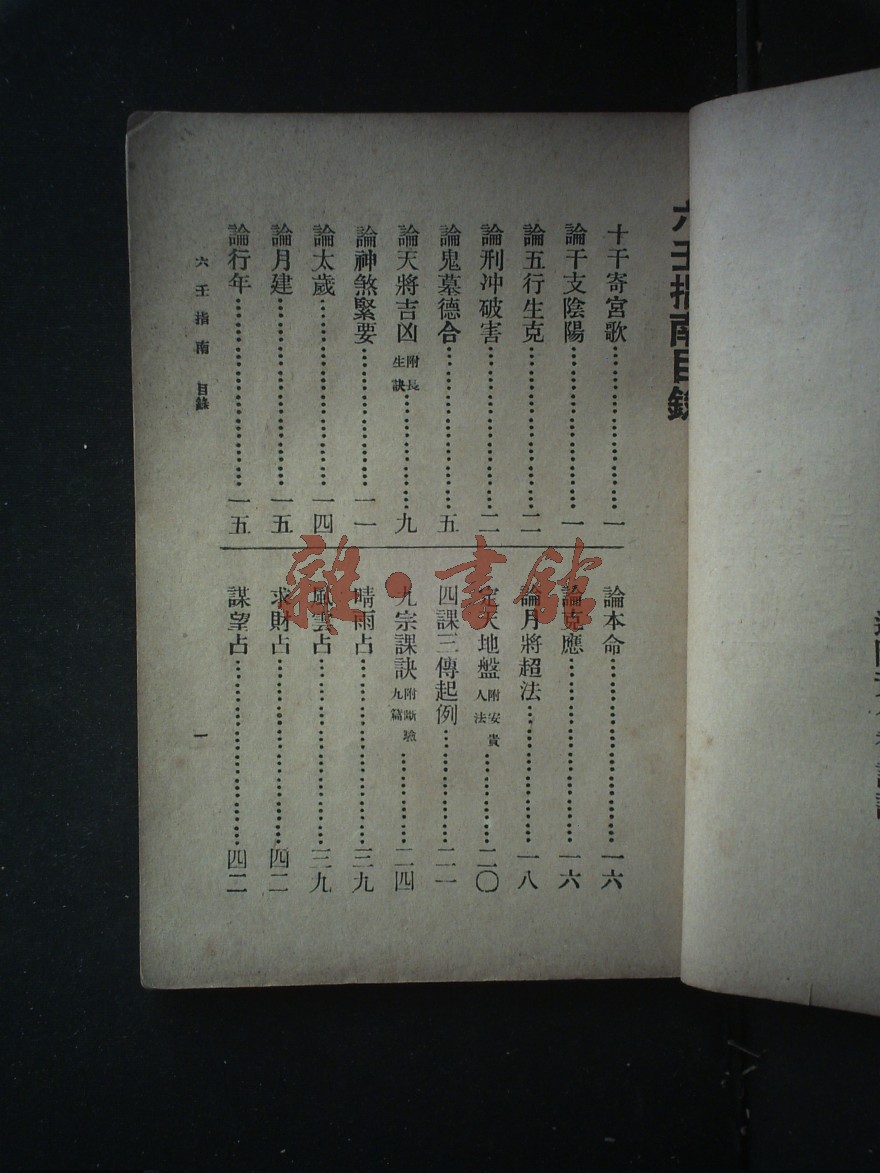 六壬指南目錄
十干寄宮歌……一
論干支陰陽……一
論五行生克……二
論刑沖破害……二
論鬼墓德合……五
論天將吉凶附長生訣……九
論神煞緊要……一一
論太歲……一四
論月建……一五
論行年……一五
論本命……一六
論克應……一六
論月將超法……一八
定天地盤附安貴人法……二〇
四課三傳起例……二一
九宗課訣附斷驗九篇……二四
晴雨占……三九
風雲占……三九
求財占……四二
謀望占……四二
六壬指南 目錄
一
雜·書館